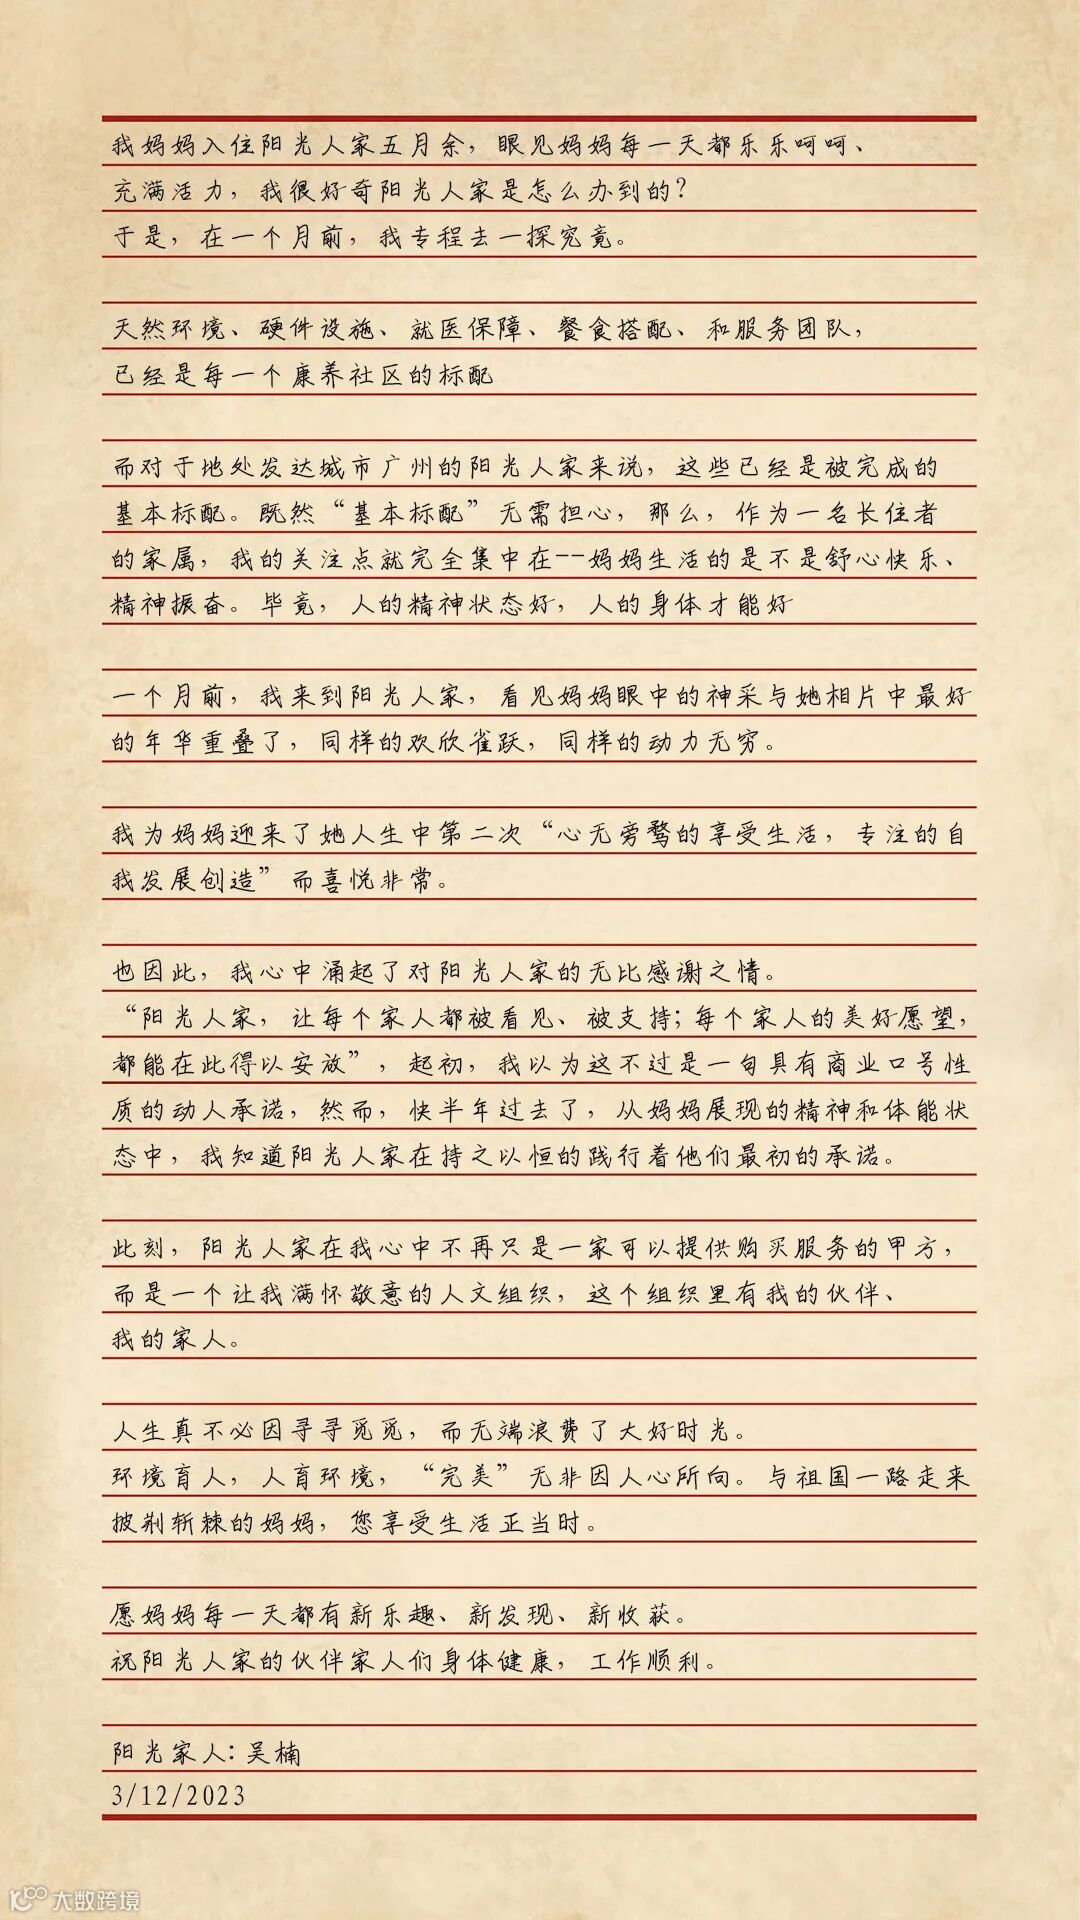 我妈妈入住阳光人家五月余，眼见妈妈每一天都乐乐呵呵、
充满活力，我很好奇阳光人家是怎么办到的？
于是，在一个月前，我专程去一探究竟。
天然环境、硬件设施、就医保障、餐食搭配、和服务团队，
已经是每一个康养社区的标配
而对于地处发达城市广州的阳光人家来说，这些已经是被完成的
基本标配。既然“基本标配”无需担心，那么，作为一名长住者
的家属，我的关注点就完全集中在--妈妈生活的是不是舒心快乐、
精神振奋。毕竟，人的精神状态好，人的身体才能好
一个月前，我来到阳光人家，看见妈妈眼中的神采与她相片中最好
的年华重叠了，同样的欢欣雀跃，同样的动力无穷。
我为妈妈迎来了她人生中第二次“心无旁鹜的享受生活，专注的自
我发展创造”而喜悦非常。
也因此，我心中涌起了对阳光人家的无比感谢之情。
“阳光人家，让每个家人都被看见、被支持；每个家人的美好愿望，
都能在此得以安放”，起初，我以为这不过是一句具有商业口号性
质的动人承诺，然而，快半年过去了，从妈妈展现的精神和体能状
态中，我知道阳光人家在持之以恒的践行着他们最初的承诺。
此刻，阳光人家在我心中不再只是一家可以提供购买服务的甲方，
而是一个让我满怀敬意的人文组织，这个组织里有我的伙伴、
我的家人。
人生真不必因寻寻觅觅，而无端浪费了大好时光。
环境育人，人育环境，“完美”无非因人心所向。与祖国一路走来
披荆斩棘的妈妈，您享受生活正当时。
愿妈妈每一天都有新乐趣、新发现、新收获。
祝阳光人家的伙伴家人们身体健康，工作顺利。
阳光家人：吴楠
3/12/2023
大数跨境